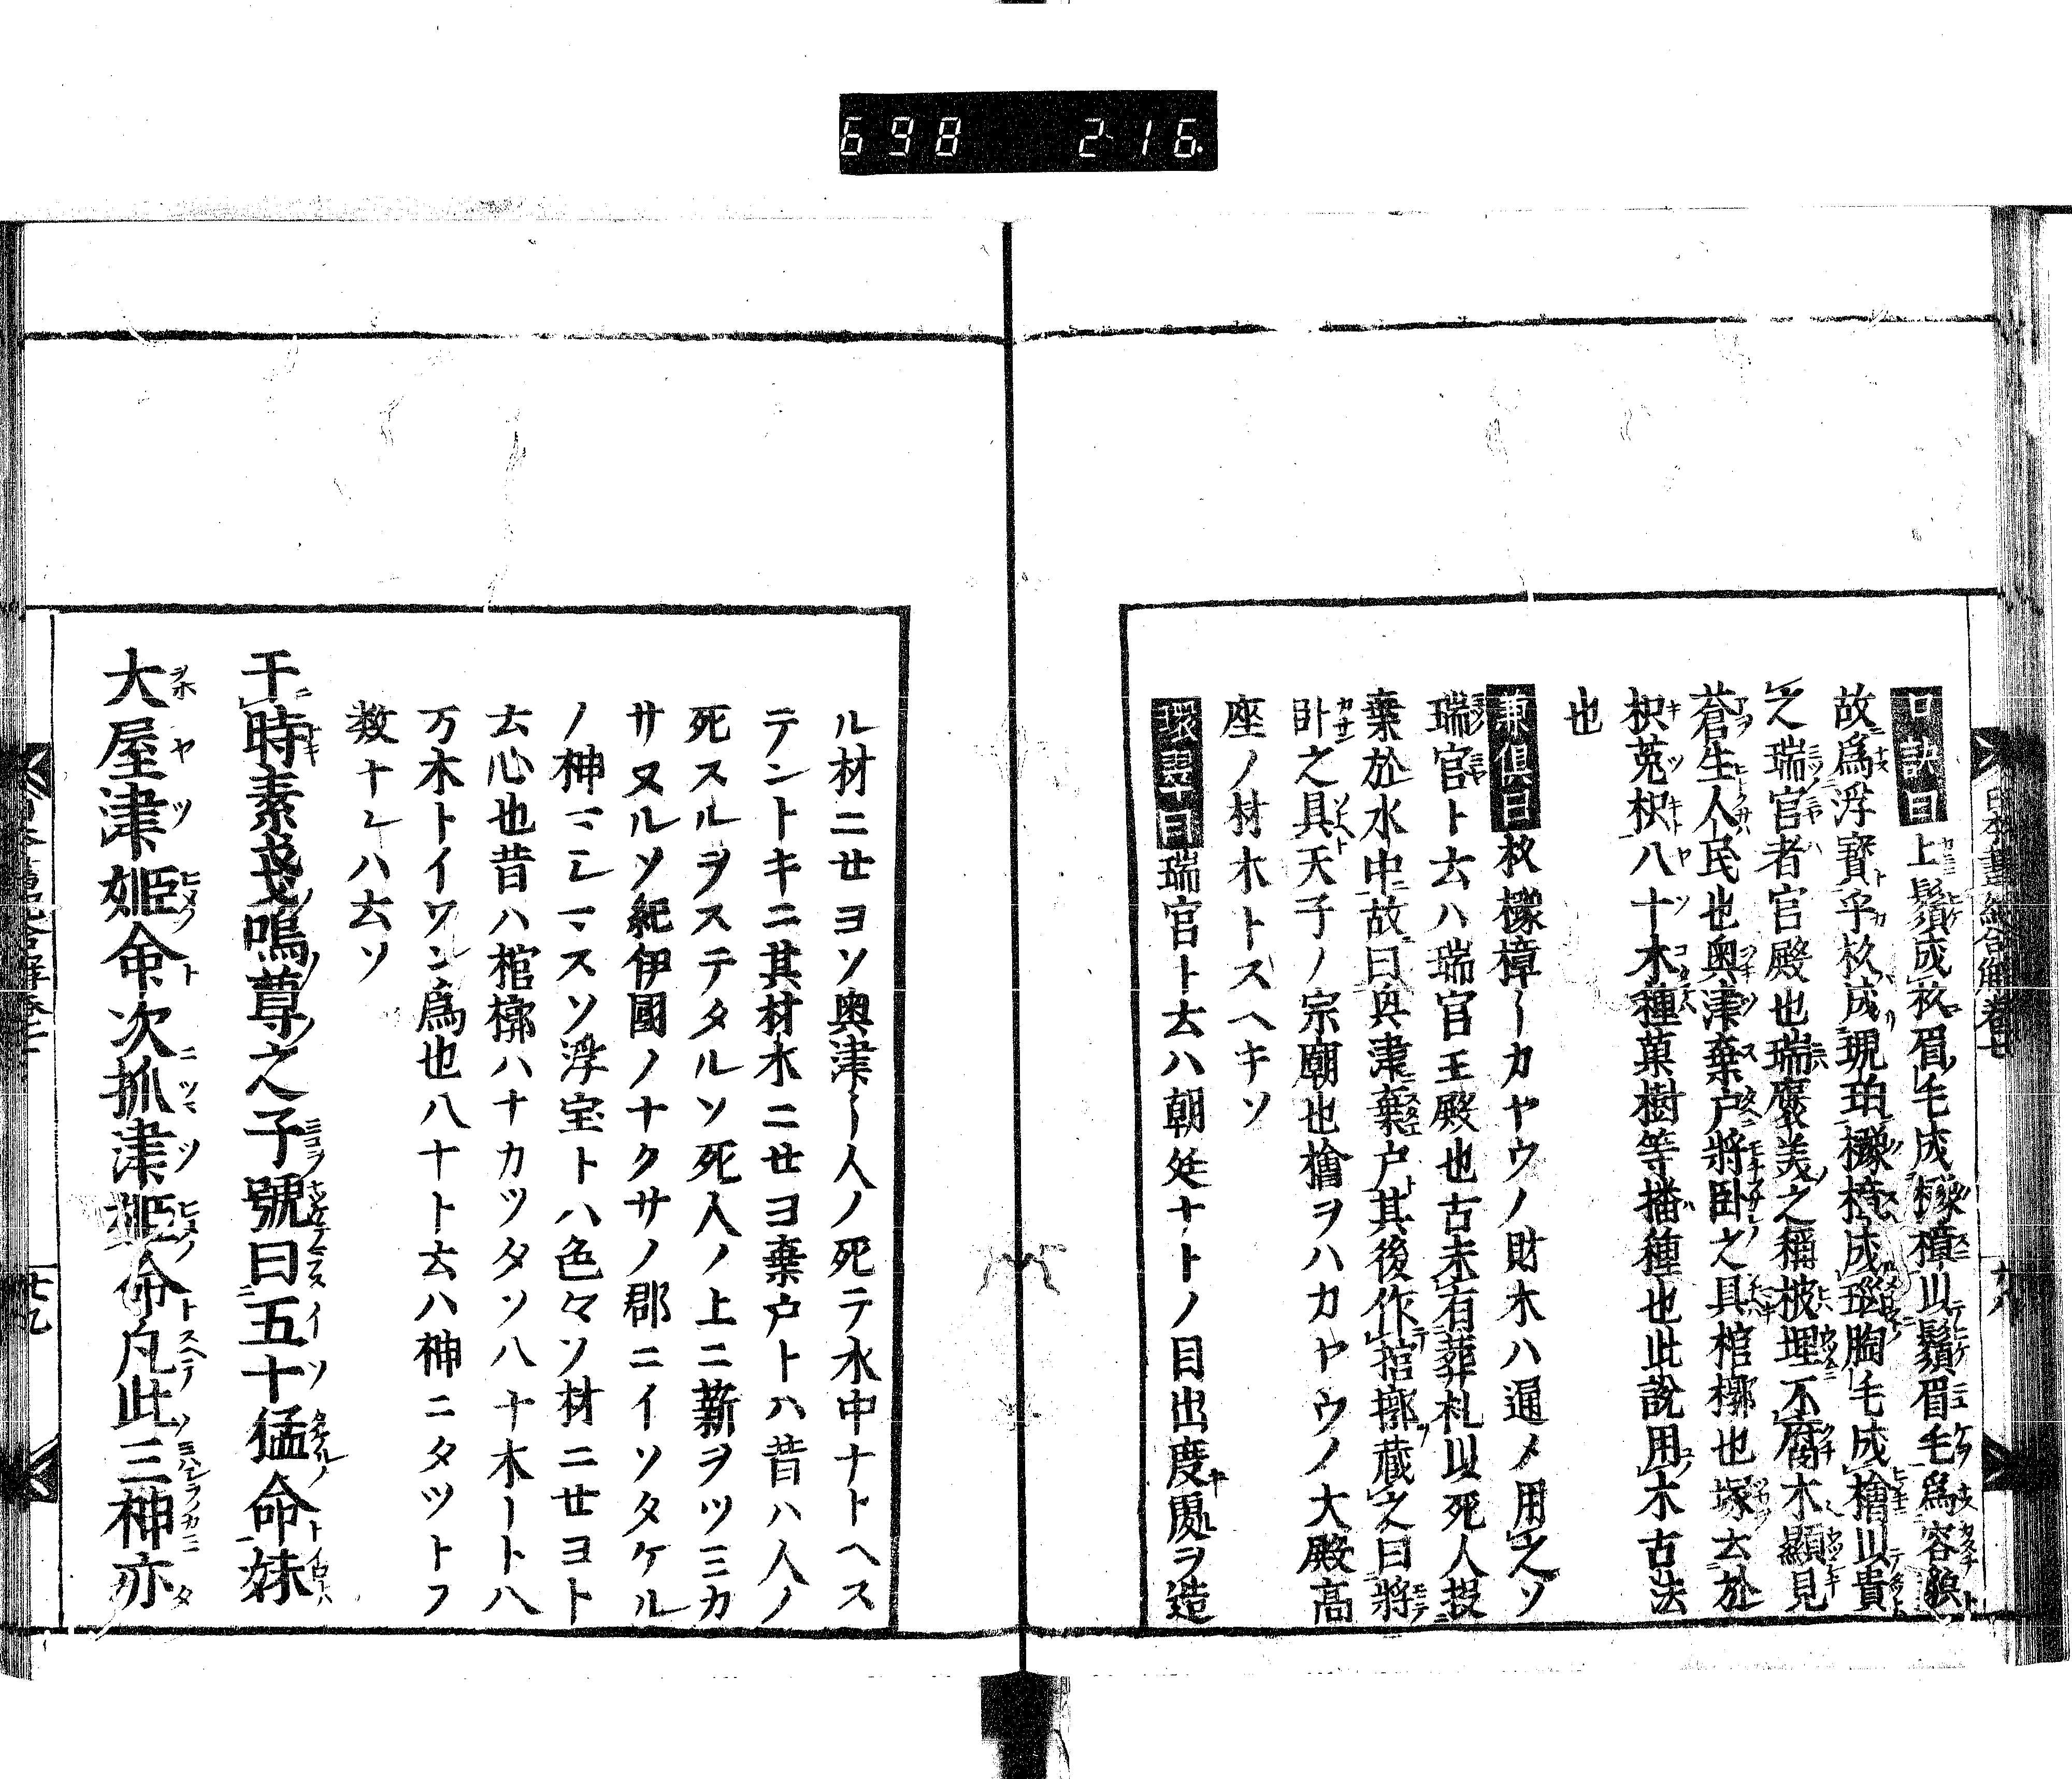 698 216
口訣曰上鬚成杦眉毛成櫲樟以鬚眉毛爲容貌
故爲浮寳乎杦成琥珀櫲樟成瑙胸毛成檜以貴
之瑞宮者宮殿也瑞褒美之稱柀埋不腐木顯見
蒼生人民也奥津棄户將卧之具棺槨也塚云於
枳菟枳八十木種菓樹等播種也此說用木古法
也
兼倶曰杦櫲樟〡カヤウノ財木ハ通メ用之ソ
瑞宮ト云ハ瑞宮王殿也古未有葬礼以死人投
棄於水中故曰奥津棄户其後作棺槨蔵之曰將
卧之具天子ノ宗廟也檜ヲハカヤウノ大殿高
座ノ材木トスヘキソ
環翠曰瑞宮ト云ハ朝廷ナトノ目出度處ヲ造
ル材ニセヨソ奥津〡人ノ死テ水中ナトヘス
テントキニ其材木ニセヨ棄户トハ昔ハ人ノ
死スルヲステタルソ死人ノ上ニ薪ヲツミカ
サヌルソ紀伊國ノナクサノ郡ニイソタケル
ノ神マシマスソ浮宝トハ色々ソ材ニセヨト
云心也昔ハ棺槨ハナカツタソ八十木〡トハ
万木トイワン爲也八十ト云ハ神ニタツトフ
数ナレハ云ソ
于時素戔嗚尊之子號曰五十猛命妹
大屋津姫命次抓津姫命凡此三神亦